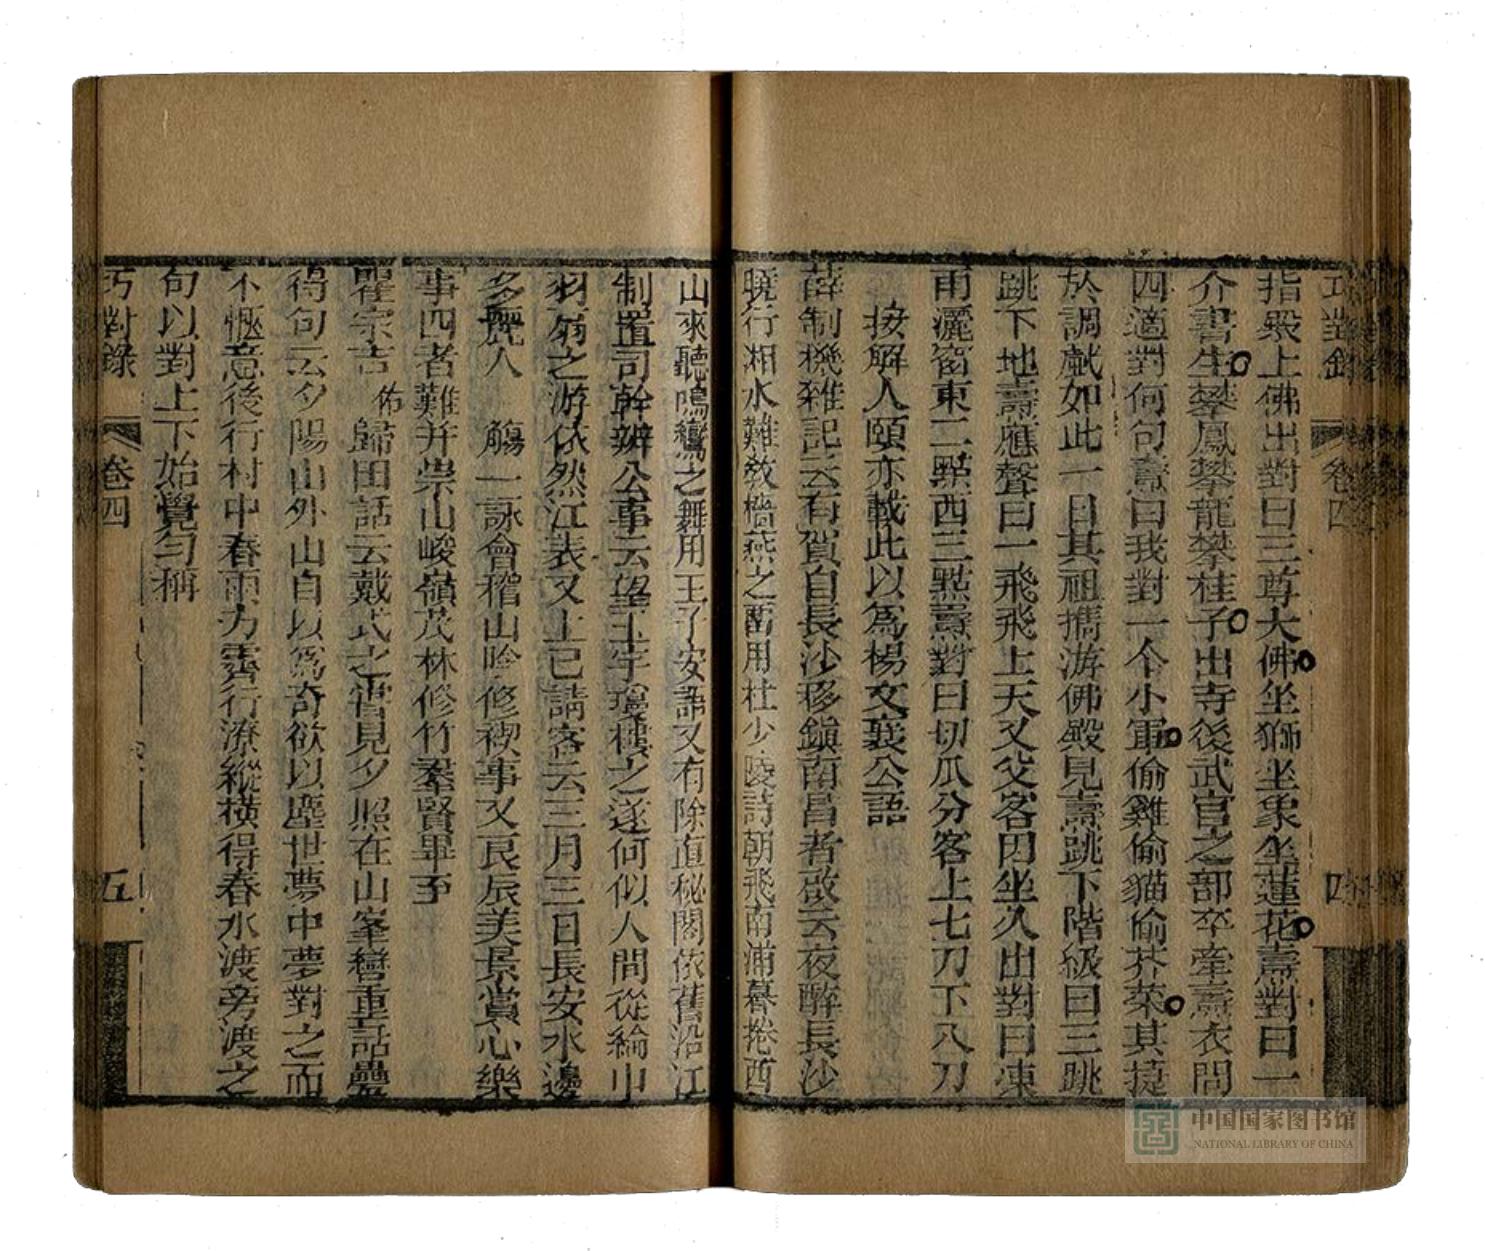 巧對錄 卷四 四
指殿上佛出對曰三尊大佛坐獅坐象坐蓮花燾對曰一
介書生攀鳳攀龍攀桂子出寺後武官之部卒牽燾衣問
四適對何句燾曰我對一个小軍偷雞偷貓偷芥菜其捷
於調獻如此一日其祖攜游佛殿見燾跳下階級曰三跳
跳下地燾應聲曰一飛飛上天又父客因坐久出對曰凍
雨灑窗東二點西三點燾對曰切瓜分客上七刀下八刀
按解人頤亦載此以爲楊文襄公語
薛制機雜記云有賀自長沙移鎭南昌者啟云夜醉長沙
曉行湘水難敎檣燕之留用杜少陵詩朝飛南浦暮捲西
山來聽鳴鸞之舞用王子安語又有除直秘閣依舊沿江
制置司幹辦公事云望玉宇瓊樓之邃何似人間從綸巾
羽扇之游依然江表又上巳請客云三月三日長安水邊
多麗人 觴一詠會稽山吟修禊事又良辰美景賞心樂
事四者難并崇山峻嶺茂林修竹羣賢畢至
瞿宗吉佑歸田話云戴式之嘗見夕照在山峯巒重疊
得句云夕陽山外山自以爲奇欲以塵世夢中夢對之而
不愜意後行村中春雨方霽行潦縱橫得春水渡旁渡之
句以對上下始覺勻稱
巧對錄 卷四 五
中国国家图书馆
NATIONAL LIBRARY OF CHINA